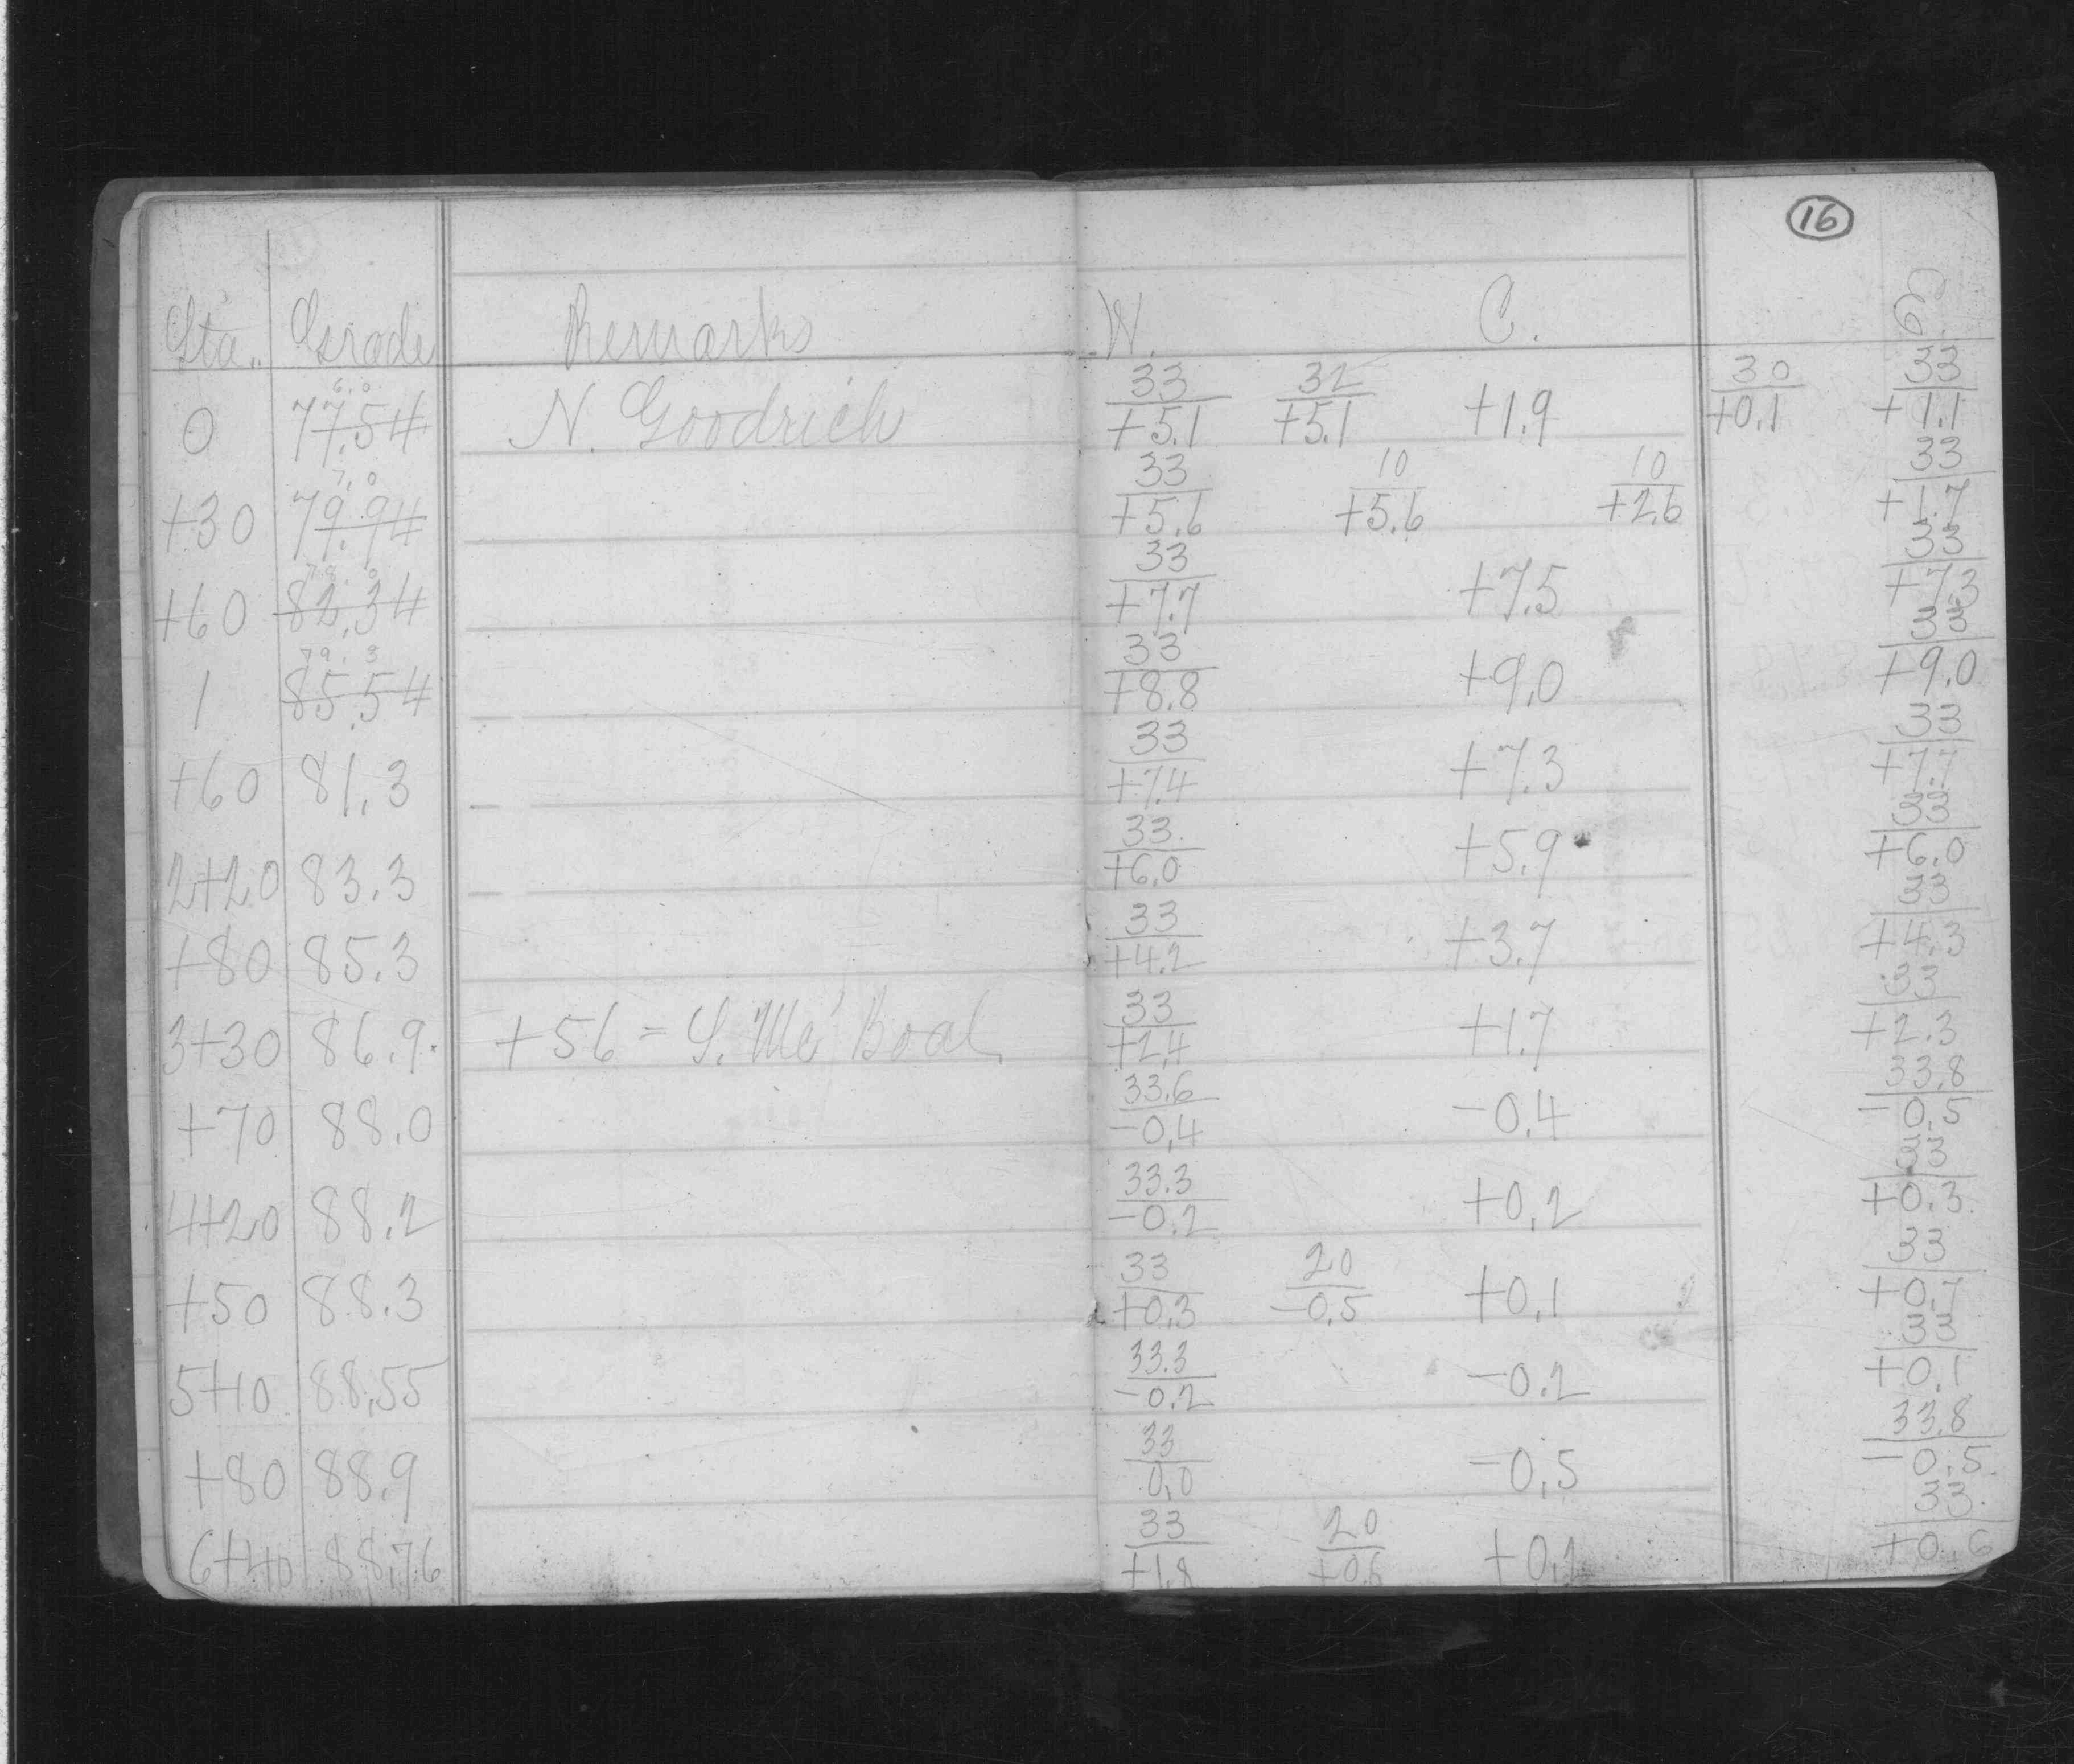 16
Sta. Grade Remarks W. C. E.
0 76.0 77.54 N. Goodrich 33/+5.1 32/+5.1 +1.9 30/+0.1 33/+1.1
+30 77.0 79.94 33/+5.6 10/+5.6 10/+2.6 33/+1.7
+60 78.0 82.34 33/+7.7 +7.5 33/+7.3
1 79.3 85.54 33/+8.8 +9.0 33/+9.0
+60 81.3 33/+7.4 +7.3 33/+7.7
2+20 83.3 33/+6.0 +5.9 33/+6.0
+80 85.3 33/+4.2 +3.7 33/+4.3
3+30 86.9 +56 = S. Mc Boal 33/+2.4 +1.7 33/+2.3
+70 88.0 33.6/-0.4 -0.4 33.8/-0.5
4+20 88.2 33.3/-0.2 +0.2 33/+0.3
+50 88.3 33/+0.3 20/-0.5 +0.1 33/+0.7
5+10 88.55 33.3/-0.2 -0.2 33/+0.1
+80 88.9 33/0.0 -0.5 33.8/-0.5
6+40 88.76 33/+1.8 20/+0.6 +0.1 33/+0.6